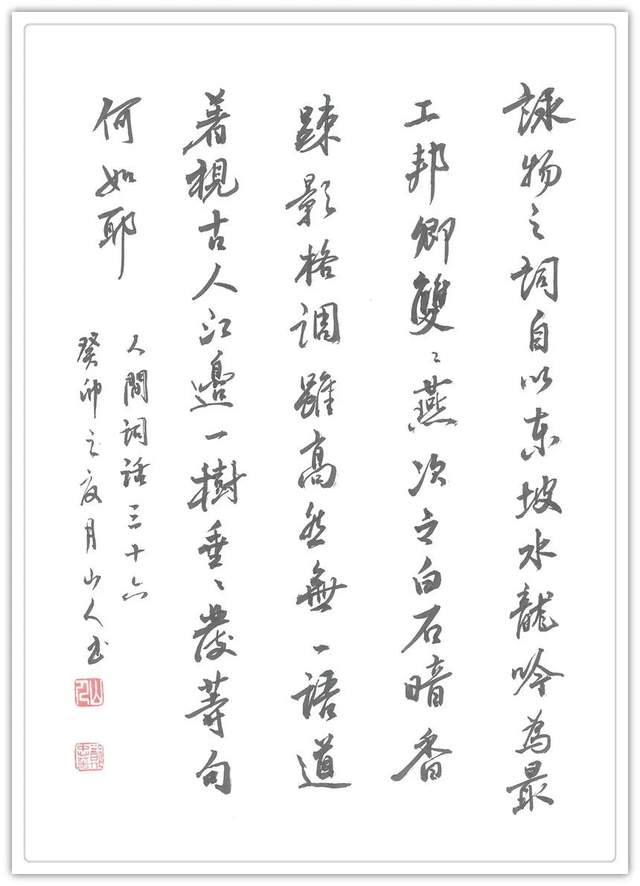 詠物之詞自以東坡水龍吟為最
工邦卿雙〻燕次之白石暗香
疎影格調雖高然無一語道
著視古人江邊一樹垂〻發等句
何如耶
人間詞話三十六
癸卯之夏月山人书